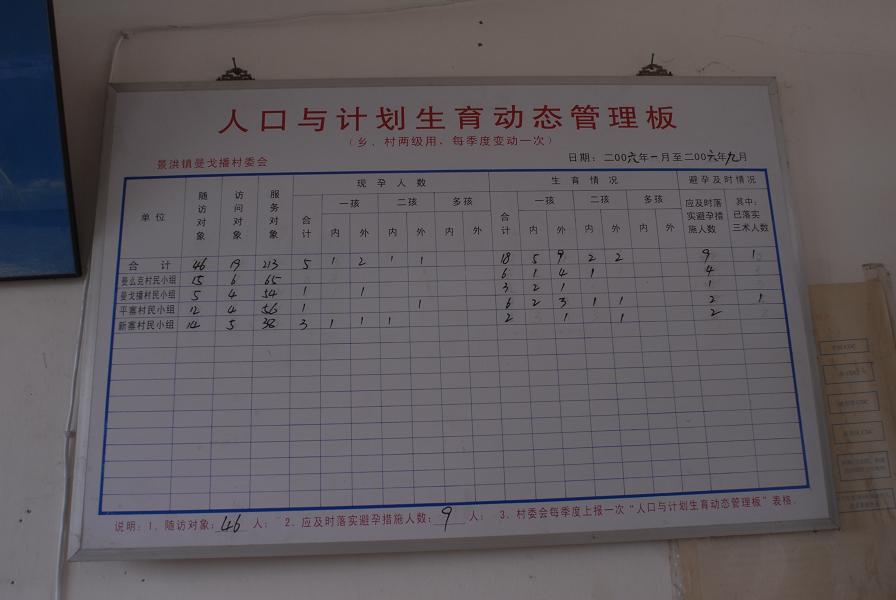 人口与计划生育动态管理板
(乡、村两级用，每季度变动一次)
景洪镇曼戈播村委会 日期：二00六年一月至二00六年九月
单位 随访对象 访问对象 服务对象 现孕人数 生育情况 避孕及时情况
合计 一孩 二孩 多孩 合计 一孩 二孩 多孩 应及时落实避孕措施人数 其中：已落实三术人数
内 外 内 外 内 外 内 外 内 外 内 外
合计 46 19 213 5 1 2 1 1 18 5 9 2 2 9 1
曼么克村民小组 15 6 65 6 1 4 1 4
曼戈播村民小组 5 4 54 1 1 3 2 1 1
平寨村民小组 12 4 56 1 1 6 2 3 1 1 2 1
新寨村民小组 14 5 38 3 1 1 1 2 1 1 2
说明：1、随访对象：46人；2、应及时落实避孕措施人数：9人；3、村委会每季度上报一次“人口与计划生育动态管理板”表格.